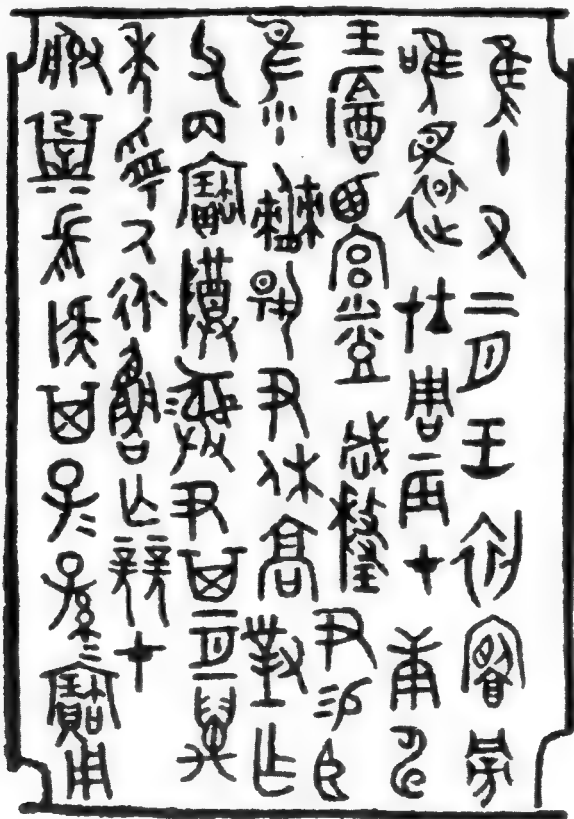 隹十又二月王初饔旁
唯還在周辰才庚申
王酓西宮烝咸釐尹易臣
隹小僰揚尹休高對乍
父丙寶尊彝尹其亘萬
年受氒永魯亡競才
服㠱長侯其子子孫孫寶用